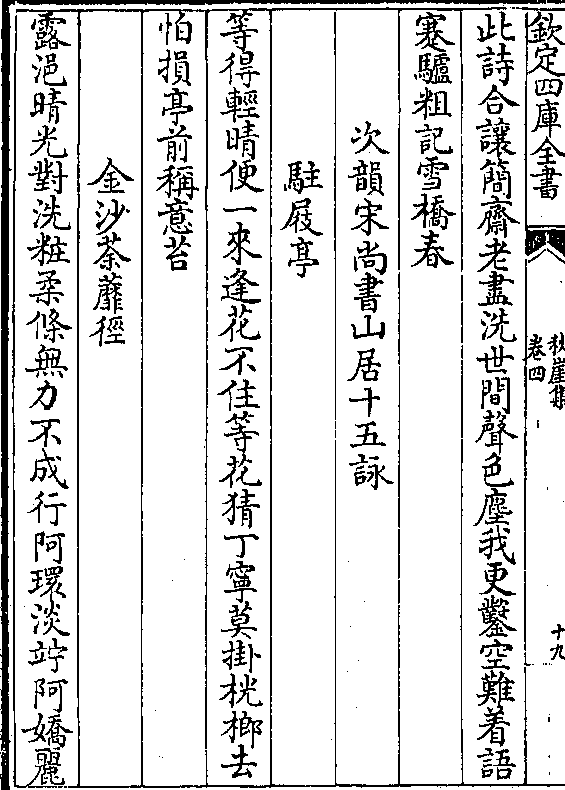 欽定四庫全書
秋崖集
卷四
十九
此詩合讓簡齋老盡洗世間聲色塵我更鑿空難着語
蹇驢粗記雪橋春
次韻宋尚書山居十五詠
駐屐亭
等得輕晴便一來逢花不住等花猜丁寧莫掛桄榔去
怕損亭前稱意苔
金沙荼蘼徑
露浥晴光對洗粧柔條無力不成行阿環淡竚阿嬌麗